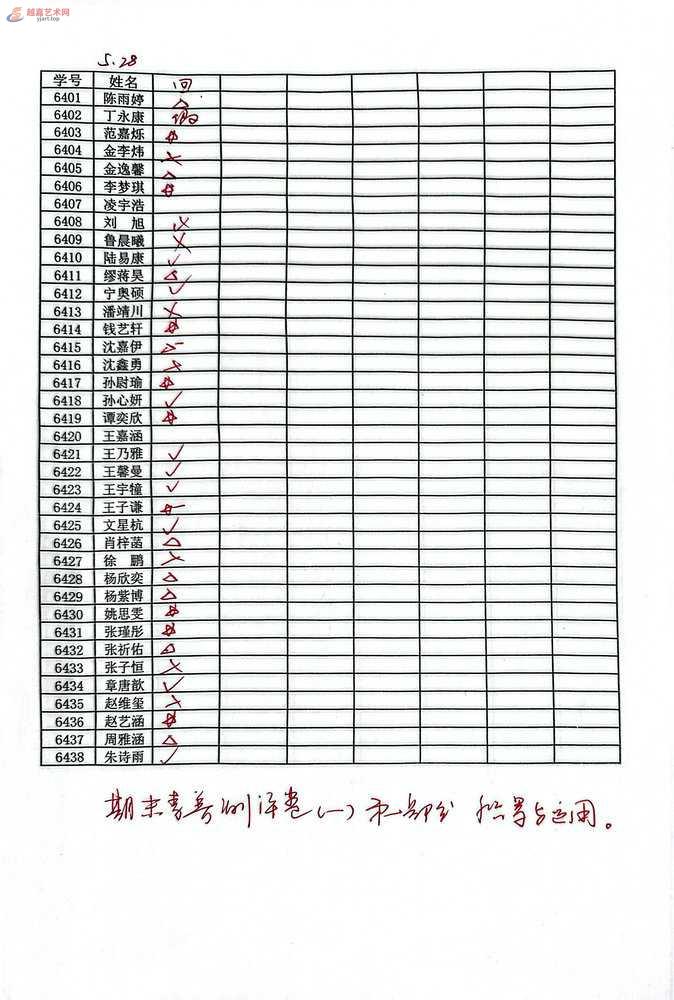 越嘉艺术网
yjart.top
5.28
学号 姓名 回
6401 陈雨婷 △
6402 丁永康 假
6403 范嘉烁
6404 金李炜 ×
6405 金逸馨 △
6406 李梦琪
6407 凌宇浩
6408 刘 旭
6409 鲁晨曦 ×
6410 陆易康 ✓
6411 缪蒋昊 △
6412 宁奥硕 ✓
6413 潘靖川 ×
6414 钱艺轩
6415 沈嘉伊 △-
6416 沈鑫勇 ×
6417 孙尉瑜
6418 孙心妍 ✓
6419 谭奕欣
6420 王嘉涵
6421 王乃雅 ✓
6422 王馨曼 ✓
6423 王宇犝 ✓
6424 王子谦
6425 文星杭 ✓
6426 肖梓菡 △
6427 徐 鹏 ×
6428 杨欣奕 △
6429 杨紫博 △
6430 姚思雯
6431 张瑾彤
6432 张祈佑 △
6433 张子恒 ×
6434 章唐歆 ✓
6435 赵维玺 ×
6436 赵艺涵
6437 周雅涵 △
6438 朱诗雨 ✓
期末素养测评卷(一) 第一部分 积累与运用。